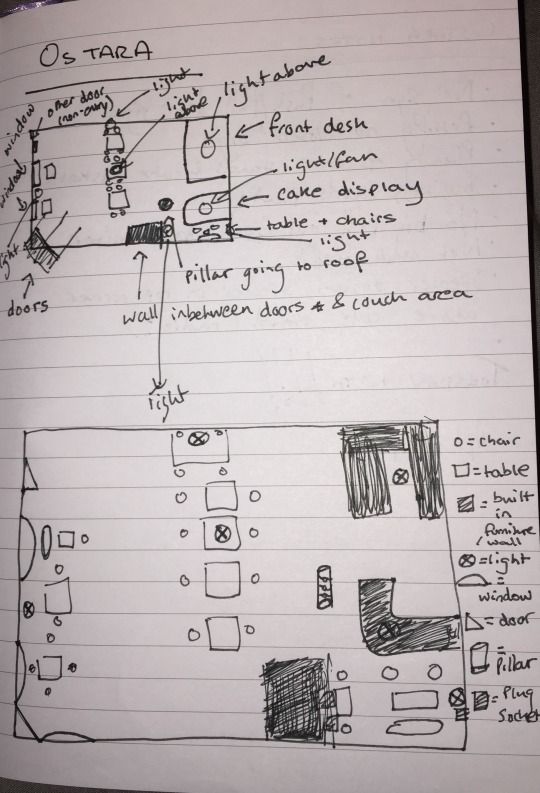 OSTARA
window
other door
(non-entry)
light
light
above
light above
front desk
light/fan
cake display
window
light
table + chairs
light
doors
pillar going to roof
wall inbetween doors & couch area
light
o = chair
= table
= built
in
furniture
/wall
= light
= window
= door
= Pillar
= Plug
Socket